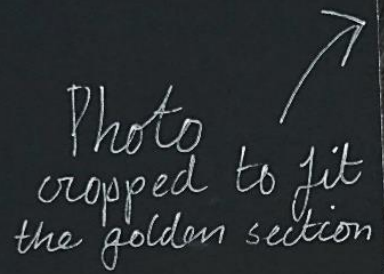 Photo
cropped to fit
the golden section